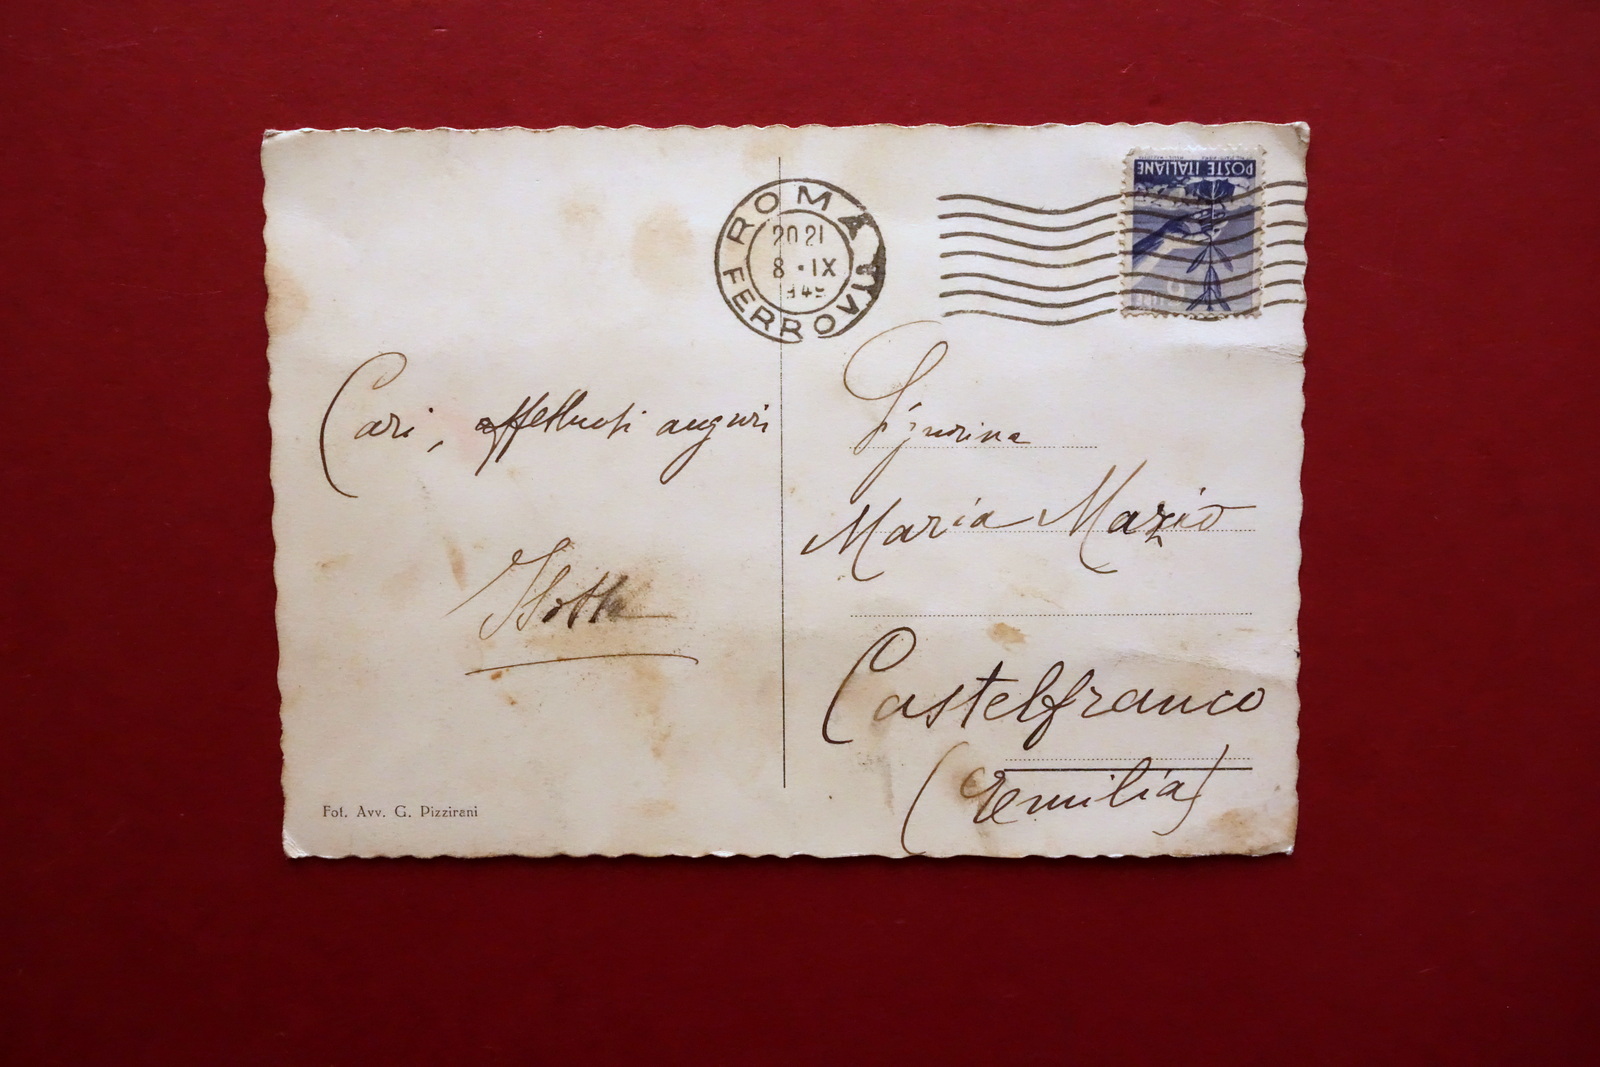 ROMA FERROVIA
20 21
8 · IX
POSTE ITALIANE
Cari, affettuosi auguri
Isotta
Signorina
Maria Mazio
Castelfranco
(Emilia)
Fot. Avv. G. Pizzirani